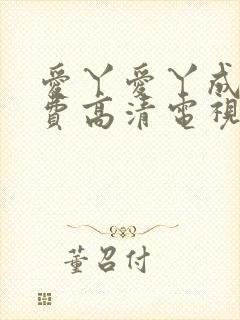 愛丫愛丫成
費高清電視
董召付